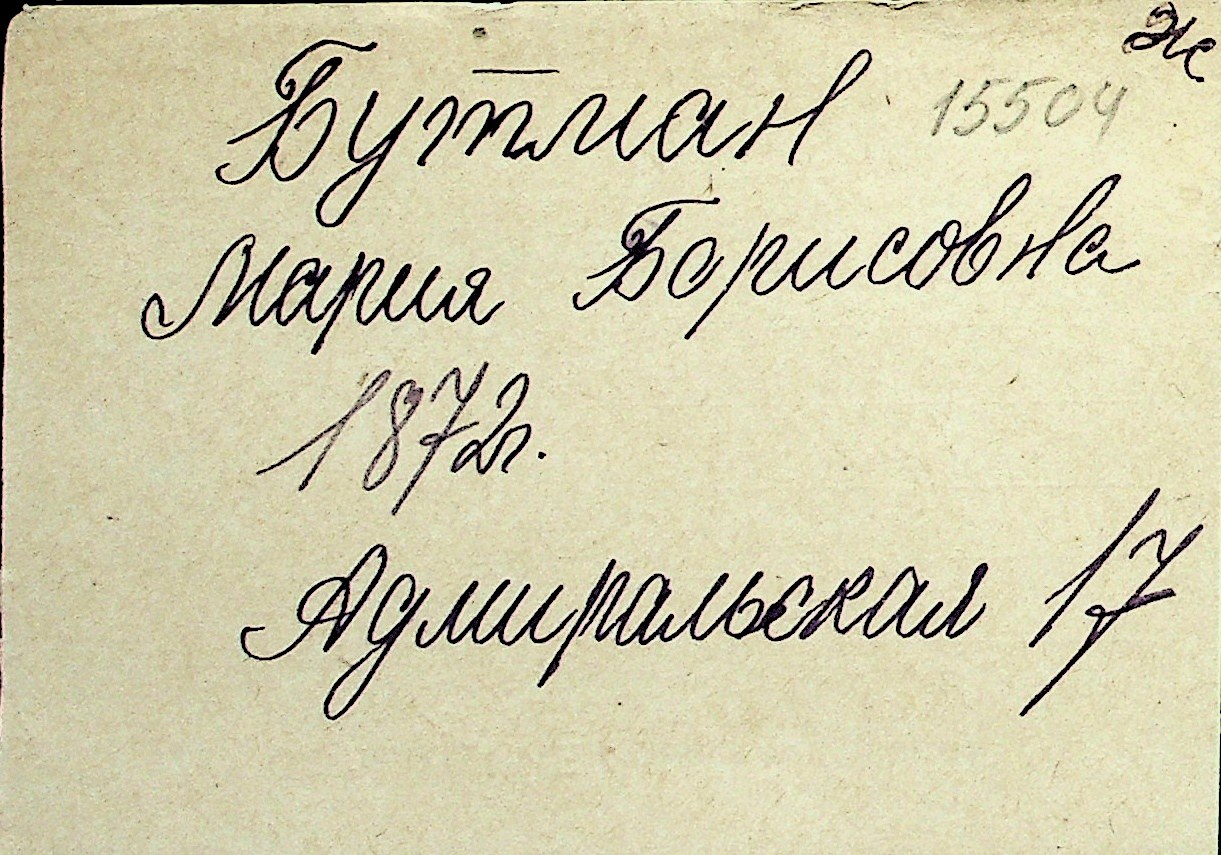 ж
Бутман 15504
Мария Борисовна
1872г.
Адмиральская 17